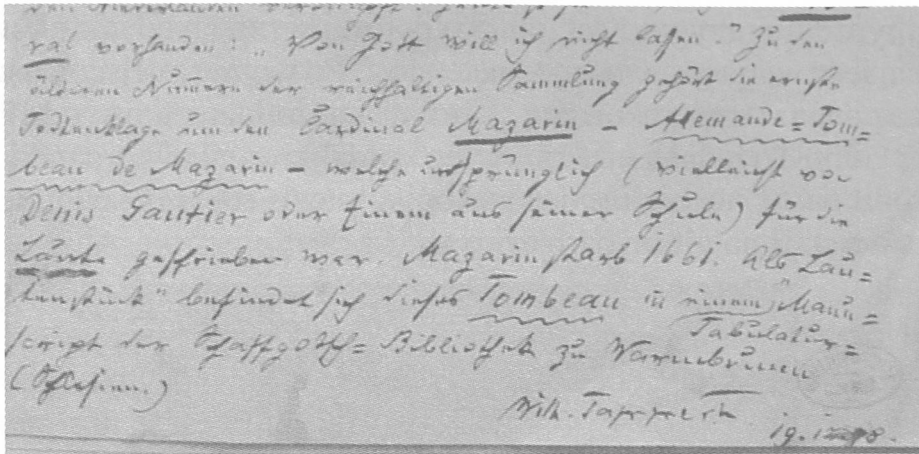 ral vorhanden: „Von Gott will ich nicht lassen." Zu den
älteren Nummern der reichhaltigen Sammlung gehört die ernste
Todtenklage um den Cardinal Mazarin – Allemande=Tom=
beau de Mazarin – welche ursprünglich (vielleicht von
Denis Gautier oder Einem aus seiner Schule) für die
Laute geschrieben war. Mazarin starb 1661. Als „Lau=
tenstück" befindet sich dieses Tombeau in einem Manu=
Tabulatur=
script der Schaffgotsch=Bibliothek zu Warmbrunn
(Schlesien.)
Wilh. Tappert